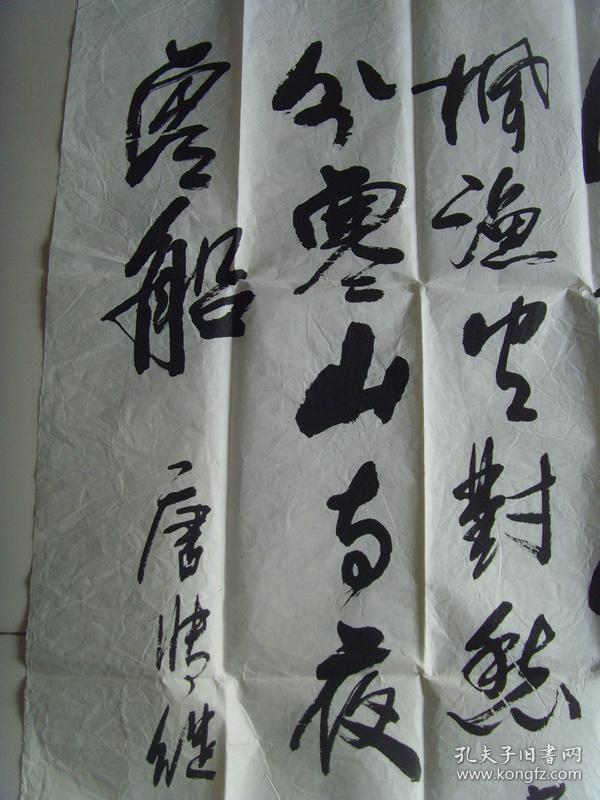 楓渔火對愁
外寒山寺夜
客船
唐張继
孔夫子旧书网
www.kongfz.com